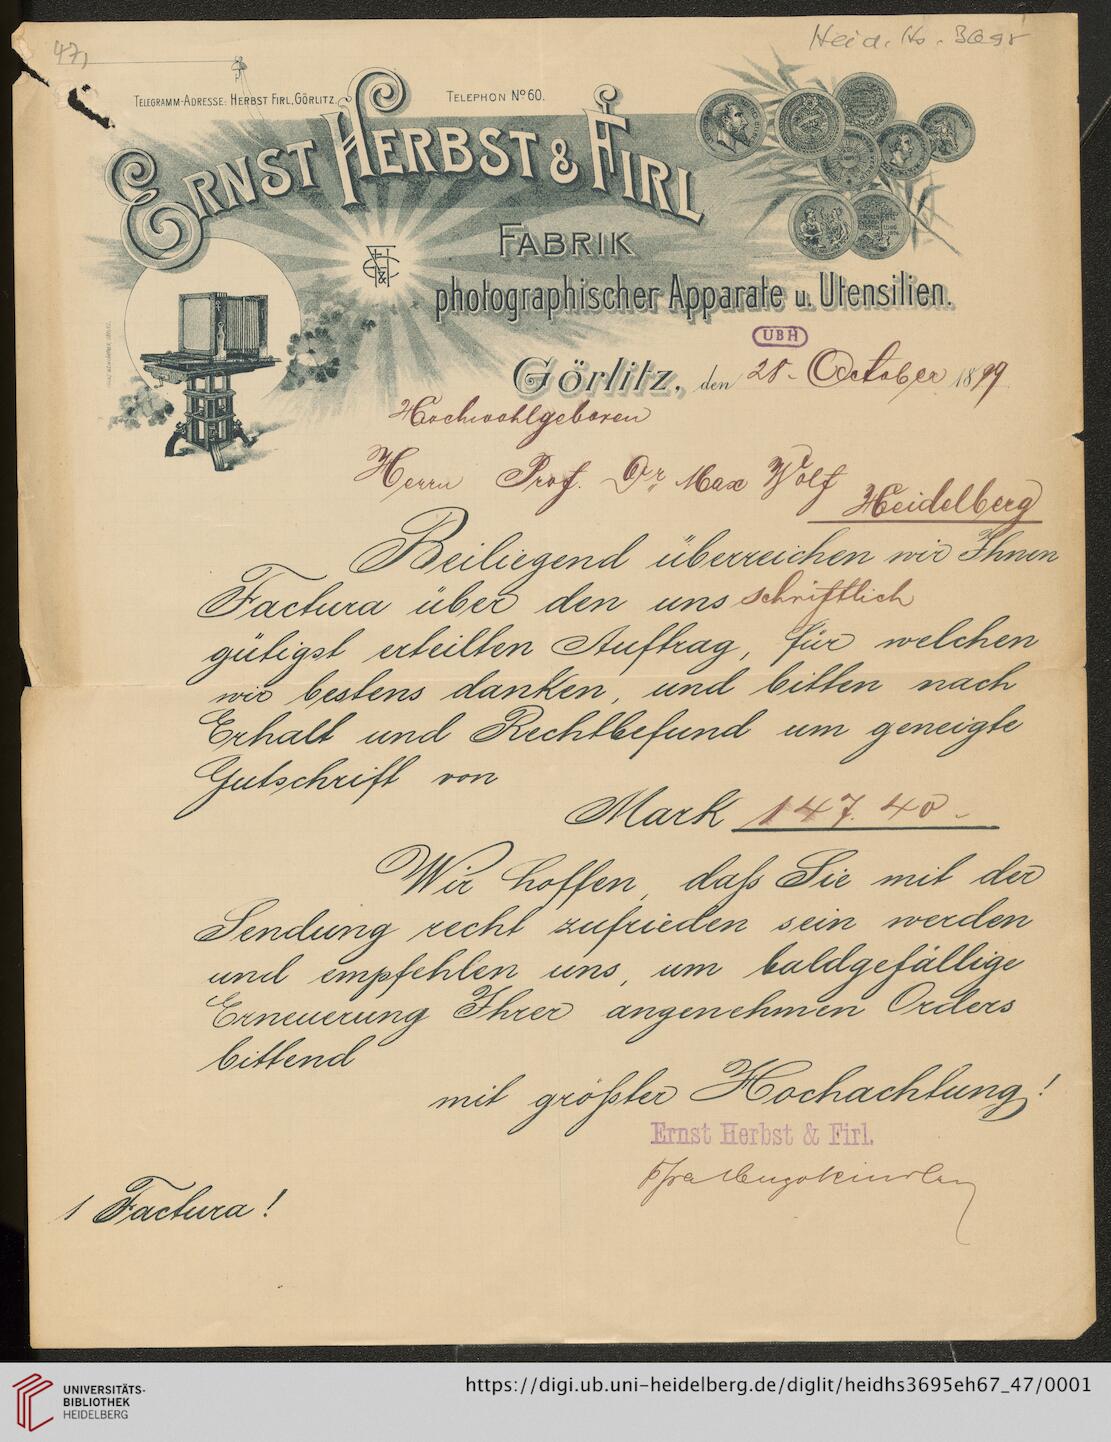 47,
Heid. Hs. 3695
TELEGRAMM-ADRESSE: HERBST FIRL, GÖRLITZ.
TELEPHON No 60.
ERNST HERBST & FIRL
FABRIK
photographischer Apparate u. Utensilien.
UBH
Görlitz, den 28. October 1899
Hochwohlgeboren
Herrn Prof. Dr. Max Wolf
Heidelberg
Beiliegend überreichen wir Ihnen
Factura über den uns schriftlich
gütigst erteilten Auftrag, für welchen
wir bestens danken, und bitten nach
Erhalt und Rechtbefund um geneigte
Gutschrift von
Mark 147.40-
Wir hoffen, daſs Sie mit der
Sendung recht zufrieden sein werden
und empfehlen uns, um baldgefällige
Erneuerung Ihrer angenehmen Orders
bittend
mit gröſster Hochachtung!
Ernst Herbst & Firl.
1 Factura!
UNIVERSITÄTS-
BIBLIOTHEK
HEIDELBERG
https://digi.ub.uni-heidelberg.de/diglit/heidhs3695eh67_47/0001